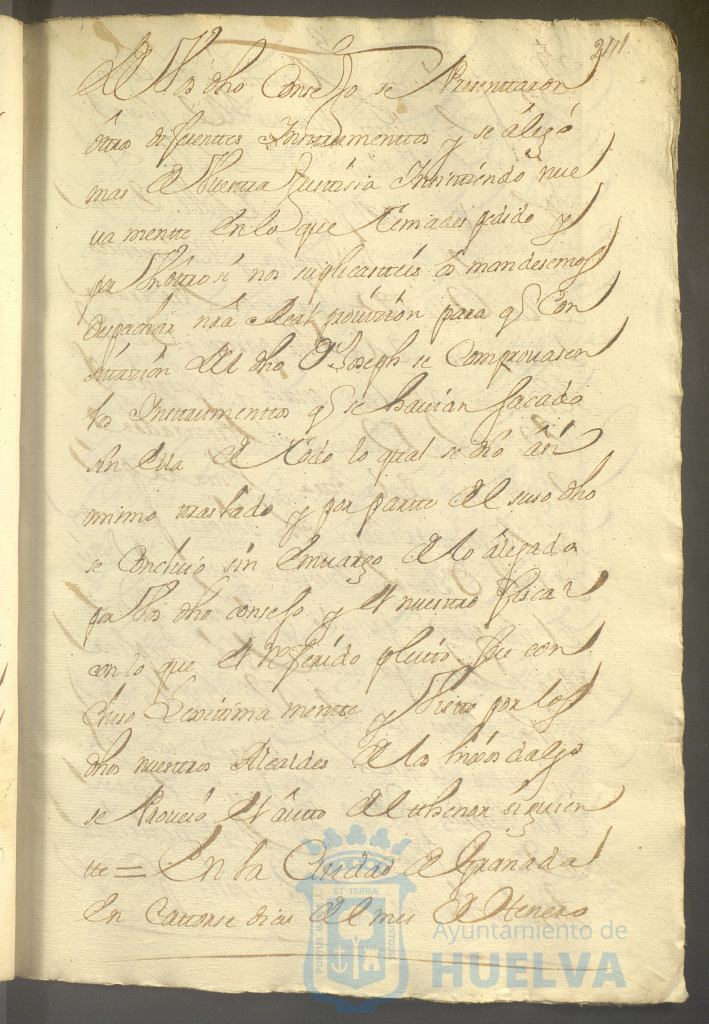 241
De Vos dho Consejo se Presenttaron
ôttros diferenttes Insttrumenttos y se âlegó
mas de Vuesttra Justtisia Insisttiendo nue
va mentte En lo que Teniades pedido y
por Un ôttro sí nos suplicastteis ôs mandasemos
despachar nrâ Real provision para q̃ Con
sittazion Del dho D. Joseph se Comprovasen
los Insttrumenttos q̃ se havian sacado
sin Ella De Todo lo qual se dio âsi
mimo ttraslado y por partte Del suso dho
se Concluió sin Embargo De lo âlegado
por Vos dho consejo y El nuesttro Fiscal
con lo que El referido pleitto fue con
cluso Lexittima mentte y Vistto por los
dhos nuesttros Alcaldes De los hixos dalgo
se Proveió El âutto Del thenor siguien
tte = En la Ciudad de Granada
En Cattorse dias Del mes de Henero
Ayuntamiento de
HUELVA
PORTUS MARIS
ET TERRÆ
CUSTODIA